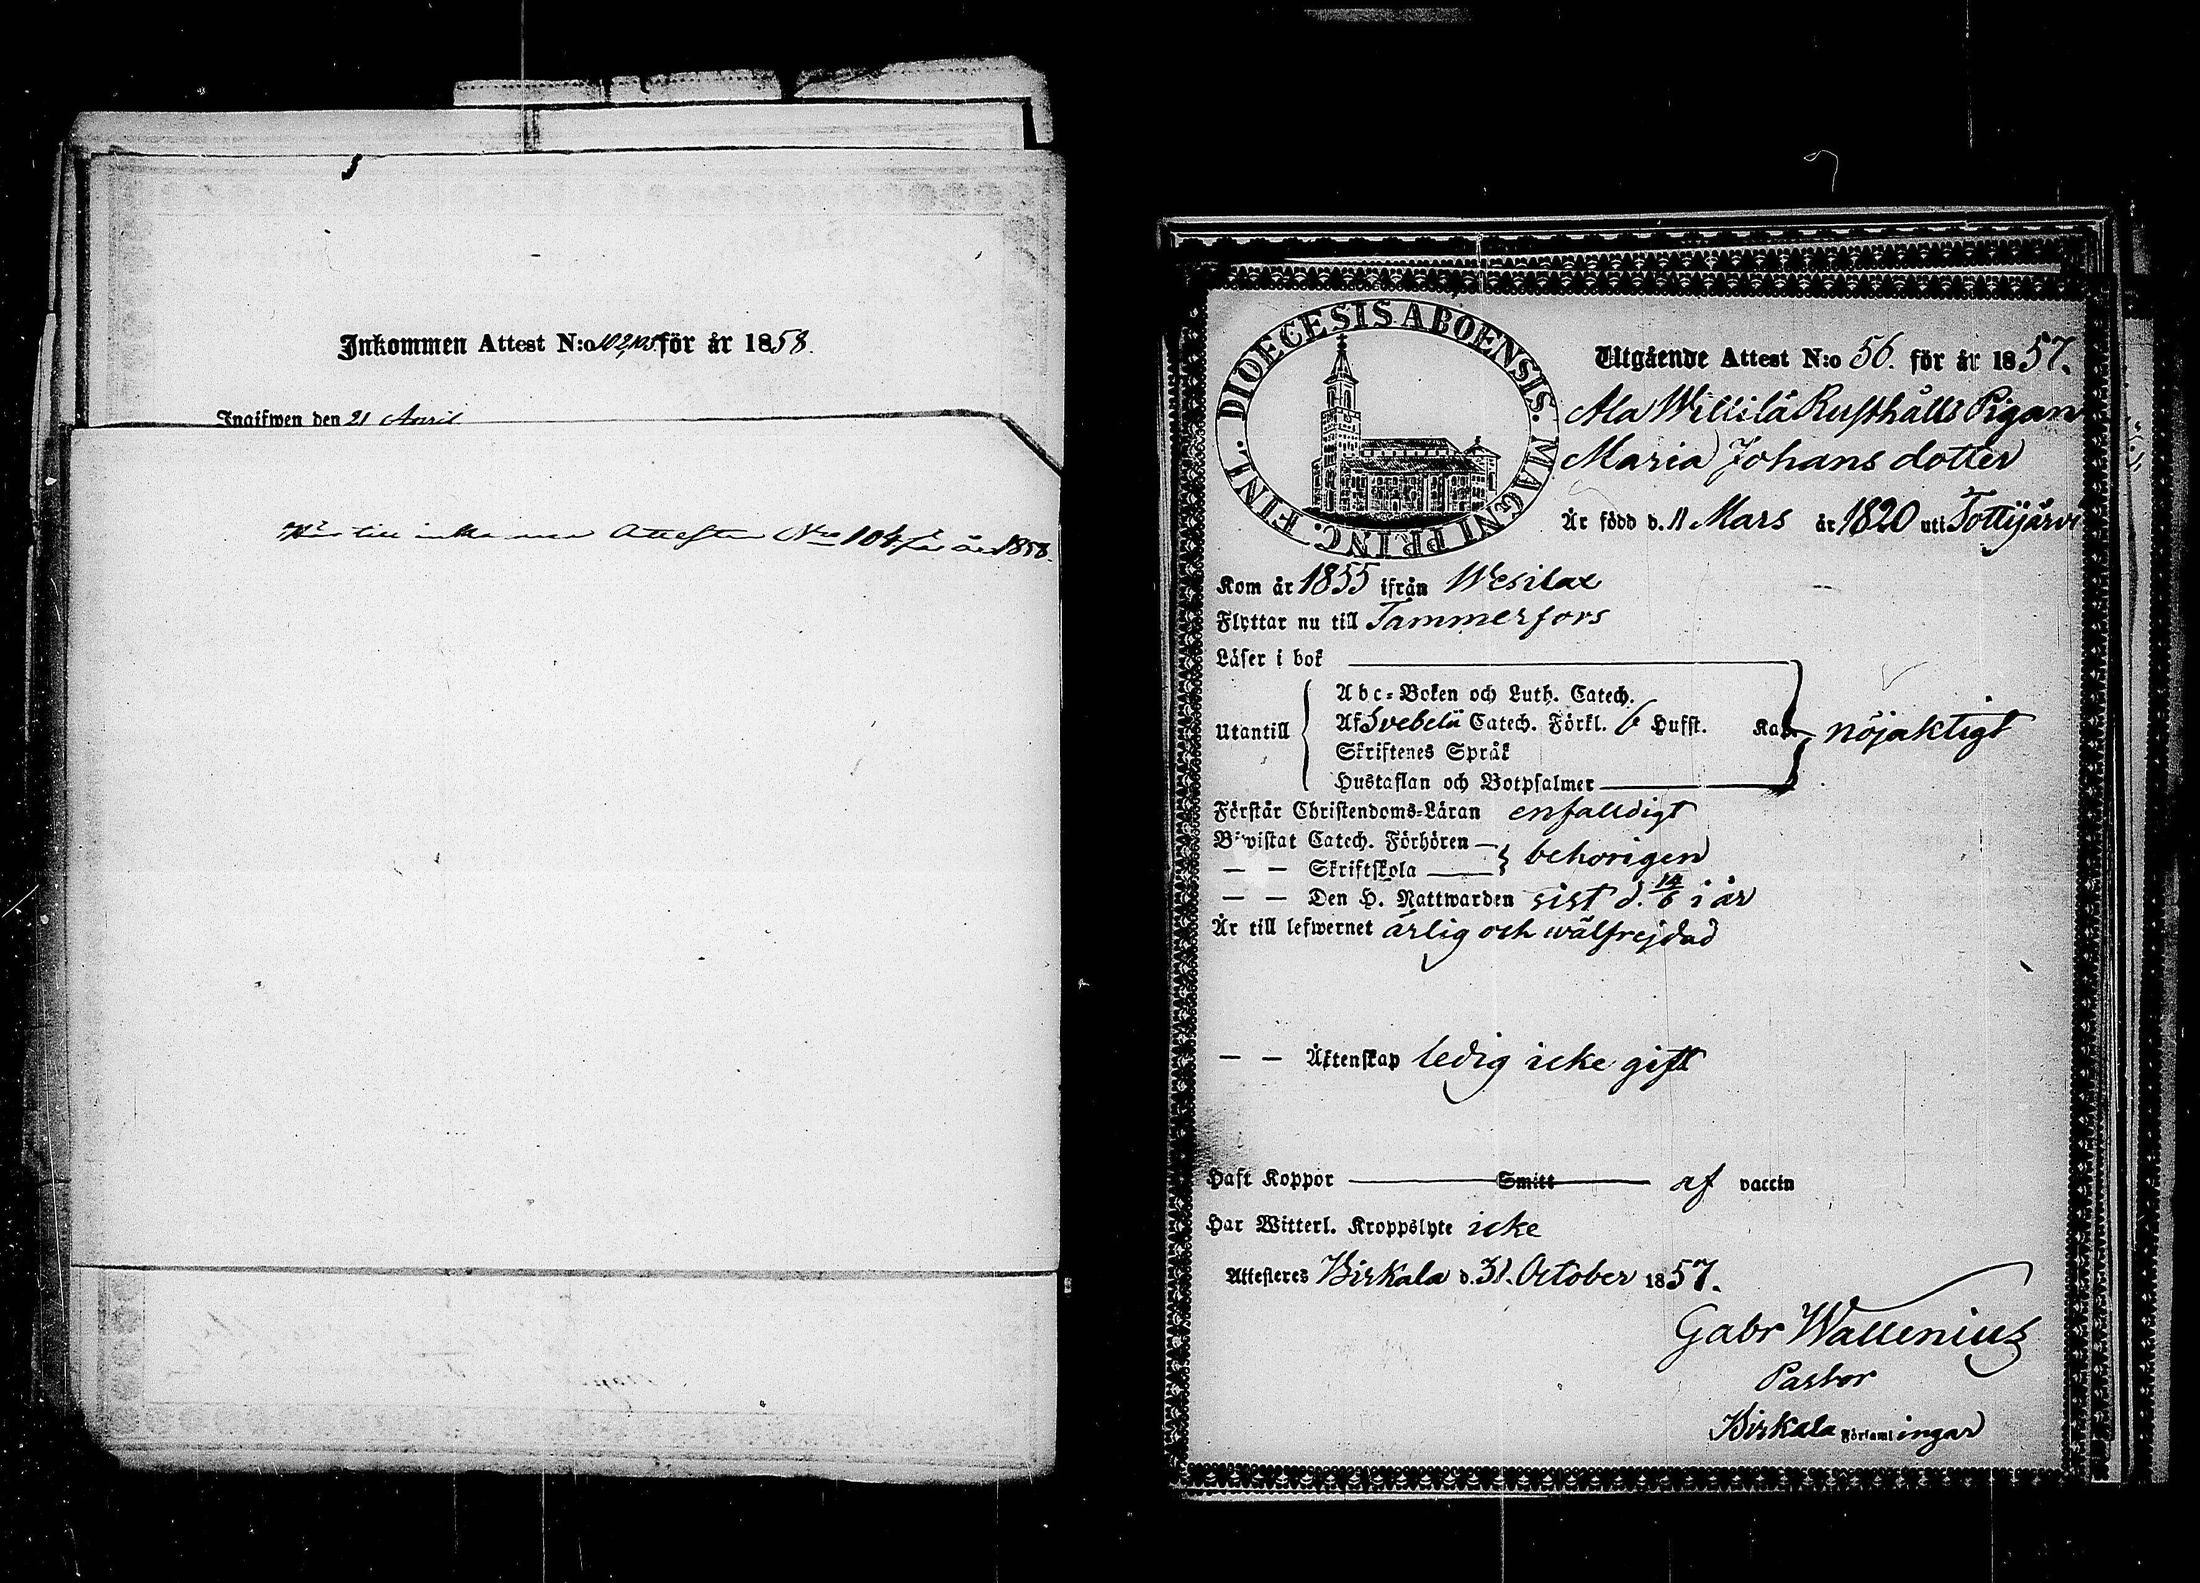 Inkommen Attest N:o 102,103 för år 1858.
Ingifwen den 21 April
Hör till inkomna Attesten Nro 104 för år 1858.
DIOECESIS ABOENSIS. MAGNI PRINC. FINL.
Utgående Attest N:o 56. för år 1857.
Ala Willilä Rusthålls Pigan
Maria Johans dotter
Är född d. 11 Mars år 1820 uti Tottijärvi
Kom år 1855 ifrån Wesilax
Flyttar nu till Tammerfors
Läser i bok
Abc-Boken och Luth. Catech.
Utantill Af Svebelii Catech. Förkl. 6 Hufst. Kan nöjaktigt
Skriftenes Språk
Hustaflan och Botpsalmer
Förstår Christendoms-Läran enfalldigt
Biwistat Catech. Förhören
— — Skriftskola behörigen
— — Den H. Nattwarden sist d. 14/6 i år
Är till lefwernet ärlig och wälfrejdad
— — Äktenskap ledig icke gift
Haft Koppor Smitt af vaccin
Har Witterl. Kroppslyte icke
Attesteres Birkala d. 31. October 1857.
Gabr Wallenius
Pastor
Birkala Församlingar